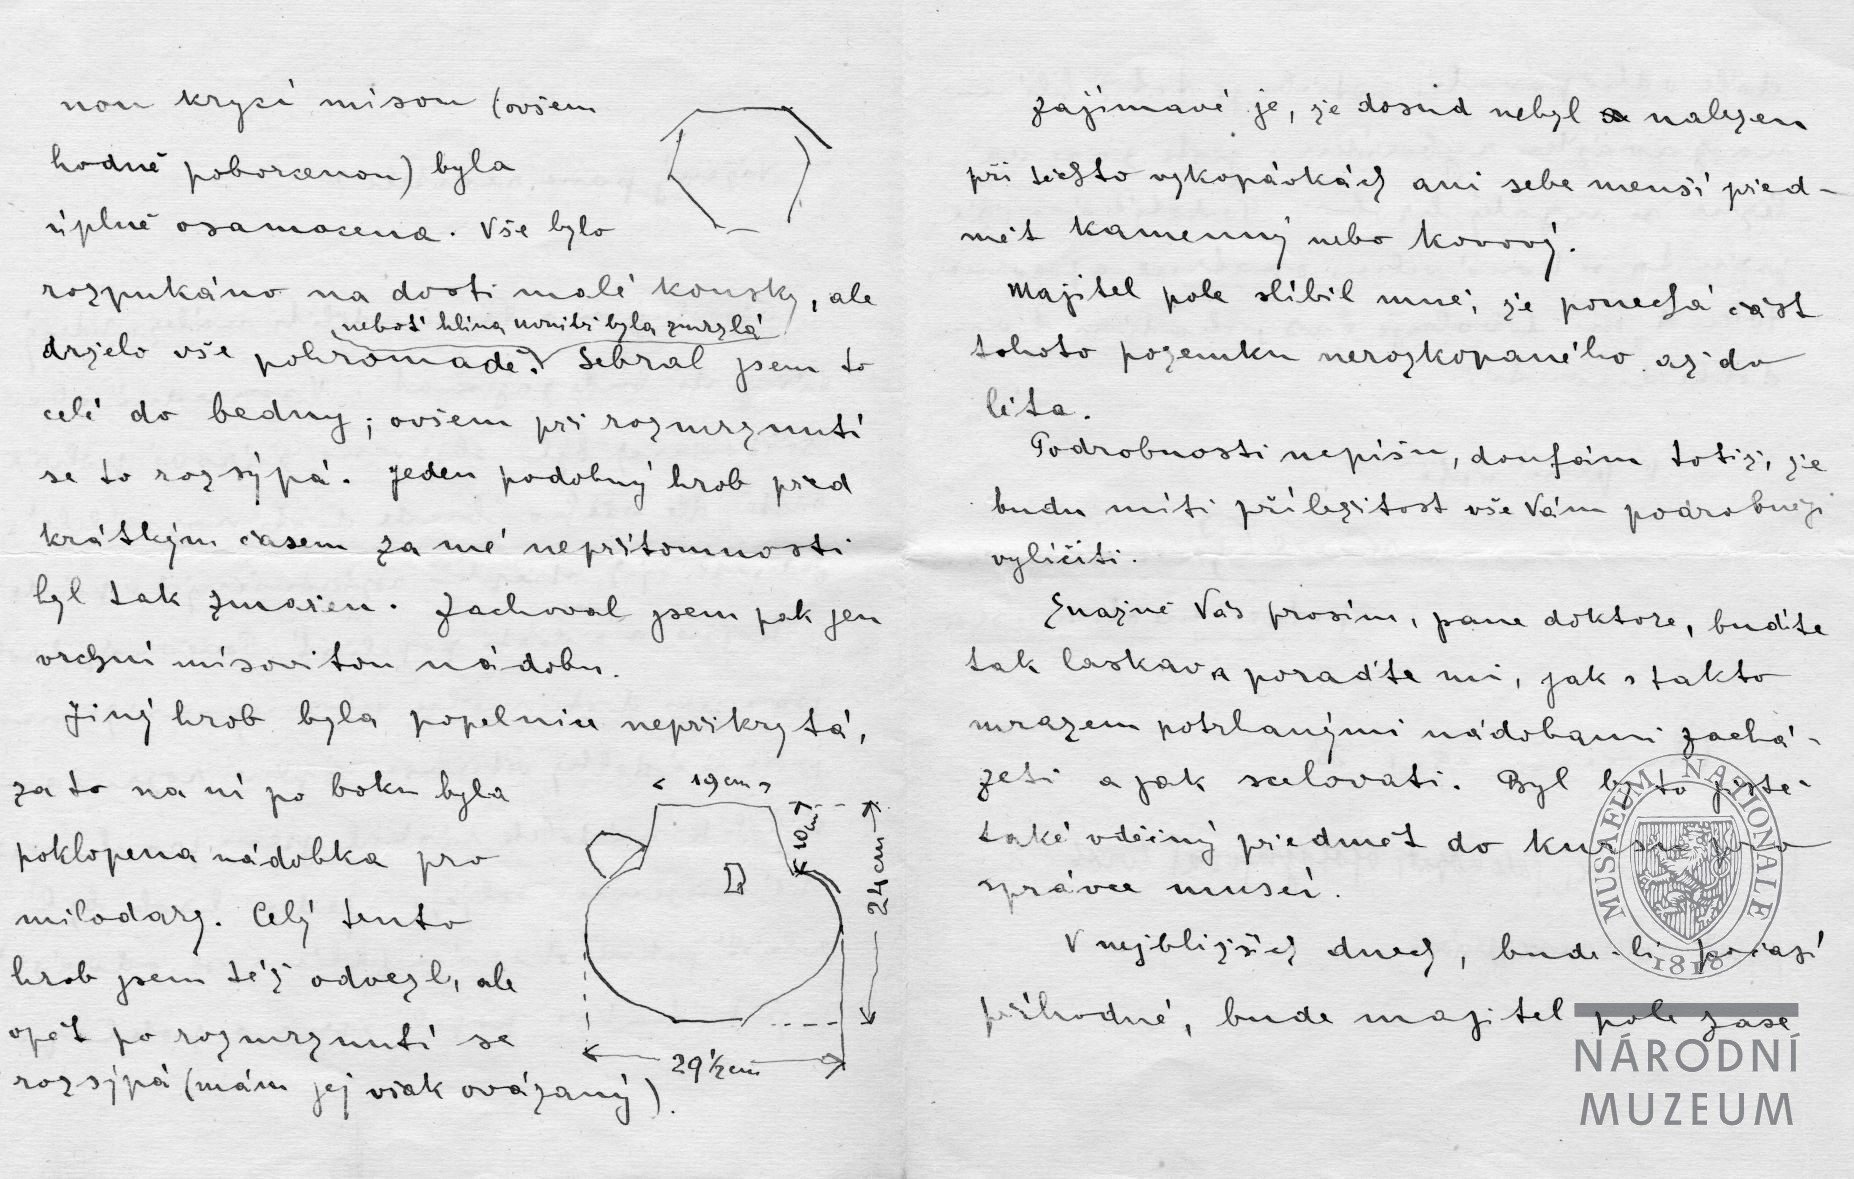 nou krycí mísou (ovšem
hodně poborcenou) byla
úplně osamocena. Vše bylo
rozpukáno na dosti malé kousky, ale
neboť hlína uvnitř byla zmrzlá
drželo vše pohromadě. Sebral jsem to
celé do bedny; ovšem při rozmrznutí
se to rozsýpá. Jeden podobný hrob před
krátkým časem za mé nepřítomnosti
byl tak zmařen. Zachoval jsem pak jen
vrchní mísovitou nádobu.
Jiný hrob byla popelnice nepřikrytá,
za to na ní po boku byla
poklopena nádobka pro
milodary. Celý tento
hrob jsem též odvezl, ale
opět po rozmrznutí se
rozsýpá (mám jej však ovázaný).
19 cm
10 cm
24 cm
29 1/2 cm
Zajímavé je, že dosud nebyl nalezen
při těchto vykopávkách ani sebe menší před-
mět kamenný nebo kovový.
Majitel pole slíbil mně, že ponechá část
tohoto pozemku nerozkopaného až do
léta.
Podrobnosti nepíšu, doufám totiž, že
budu míti příležitost vše Vám podrobněji
vylíčiti.
Snažně Vás prosím, pane doktore, buďte
tak laskav a poraďte mi, jak s takto
mrazem potrhanými nádobami zachá-
zeti a jak scelovati. Byl by to jistě
také vděčný předmět do kursu pro
správce museí.
V nejbližších dnech, bude-li počasí
příhodné, bude majitel pole zase
MUSAEUM NATIONALE
1818
NÁRODNÍ
MUZEUM